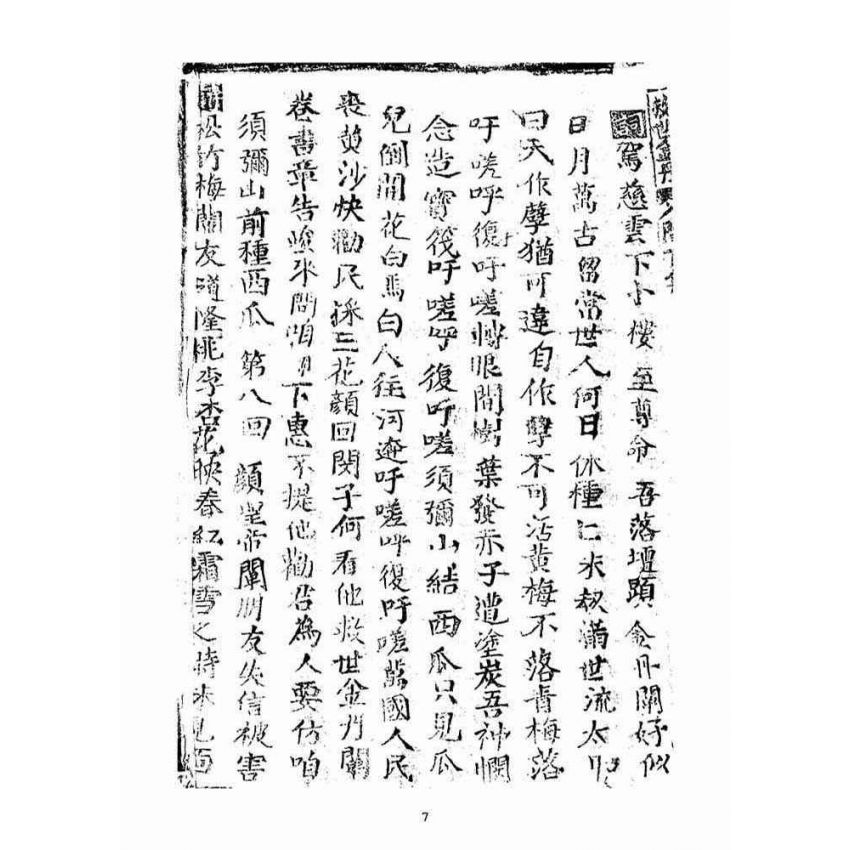 救世金丹
駕慈雲下小樓至尊命吾落壇題金丹闡好似
日月萬古留當世人何日休種仁米救滿世流太甲
曰天作孽猶可違自作孽不可活黃梅不落青梅落
吁嗟呼復吁嗟轉眼間樹葉發赤子遭塗炭吾神憫
念造寶筏吁嗟乎復吁嗟須彌山結西瓜只見瓜
兒倒開花白馬白人往河邊吁嗟呼復吁嗟萬國人民
喪黃沙快勸民採三花顏回閔子何看他救世金丹闡
卷書章告峻來問咱 下惠不提他勸君為人要仿咱
須彌山前種西瓜 第八回 顏聖帝闡朋友失信被害
松竹梅蘭友道隆桃李杏花映春紅霜雪之時來見面
7